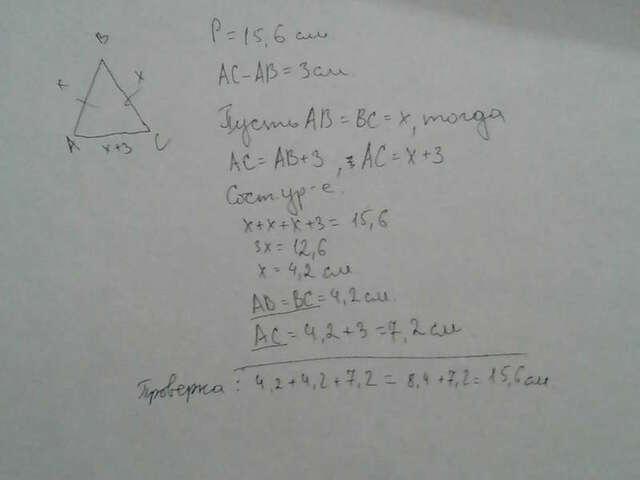 B
x x
A x+3 C
P = 15,6 см
AC - AB = 3 см
Пусть AB = BC = x, тогда
AC = AB + 3, AC = x + 3
Сост. ур-е.
x + x + x + 3 = 15,6
3x = 12,6
x = 4,2 см
AB = BC = 4,2 см.
AC = 4,2 + 3 = 7,2 см
Проверка: 4,2 + 4,2 + 7,2 = 8,4 + 7,2 = 15,6 см